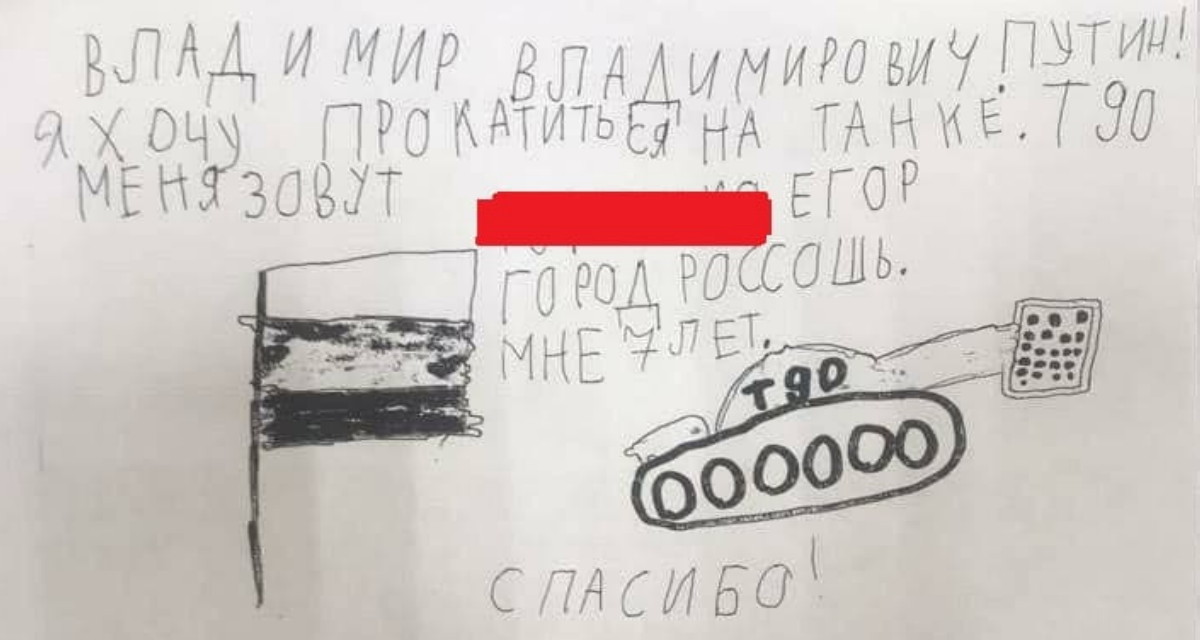 ВЛАДИМИР ВЛАДИМИРОВИЧ ПУТИН!
Я ХОЧУ ПРОКАТИТЬСЯ НА ТАНКЕ. Т90
МЕНЯ ЗОВУТ ЕГОР
ГОРОД РОССОШЬ.
МНЕ 7 ЛЕТ.
Т90
СПАСИБО!